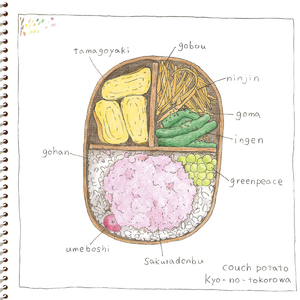 gobou
tamagoyaki
ninjin
goma
ingen
gohan
greenpeace
umeboshi
sakuradenbu
couch potato
Kyo-no-tokorowa